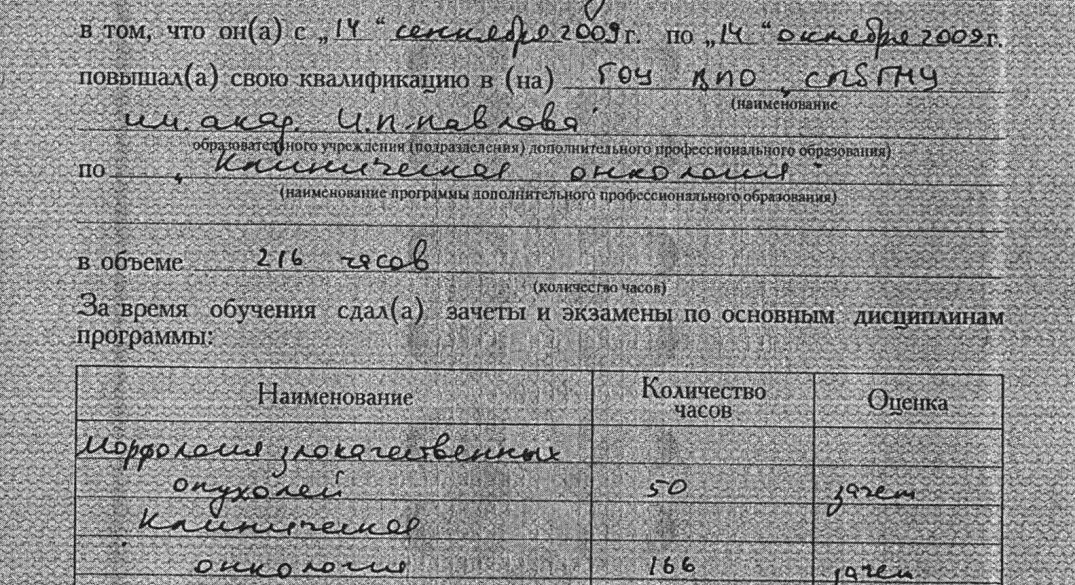 в том, что он(а) с „14“ сентября 2009г. по „14“ октября 2009г.
повышал(а) свою квалификацию в (на) ГОУ ВПО „СПбГМУ
(наименование
им. акад. И.П. Павлова“
образовательного учреждения (подразделения) дополнительного профессионального образования)
по „Клиническая онкология“
(наименование программы дополнительного профессионального образования)
в объеме 216 часов
(количество часов)
За время обучения сдал(а) зачеты и экзамены по основным дисциплинам
программы:
Наименование Количество часов Оценка
Морфология злокачественных
опухолей 50 зачет
Клиническая
онкология 166 зачет